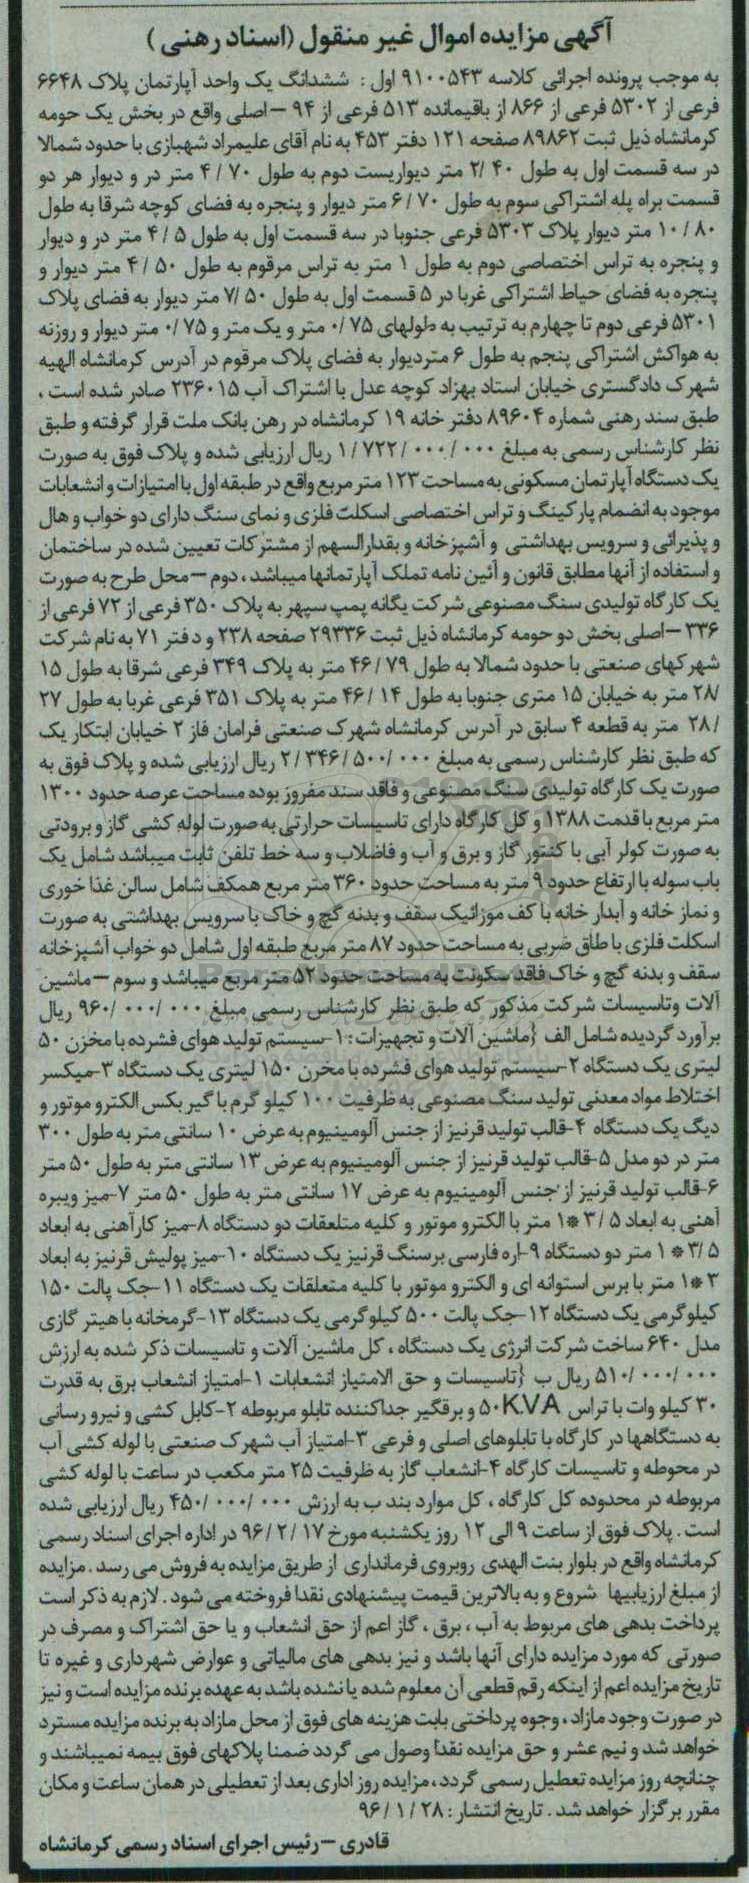 آگهی مزایده اموال غیر منقول (اسناد رهنی)
به موجب پرونده اجرائی کلاسه ۹۱۰۰۵۴۳ اول : ششدانگ یک واحد آپارتمان پلاک ۶۶۴۸
فرعی از ۵۳۰۲ فرعی از ۸۶۶ از باقیمانده ۵۱۳ فرعی از ۹۴ –اصلی واقع در بخش یک حومه
کرمانشاه ذیل ثبت ۸۹۸۶۲ صفحه ۱۲۱ دفتر ۴۵۳ به نام آقای علیمراد شهبازی با حدود شمالا
در سه قسمت اول به طول ۲/۴۰ متر دیواریست دوم به طول ۴/۷۰ متر در و دیوار هر دو
قسمت براه پله اشتراکی سوم به طول ۶/۷۰ متر دیوار و پنجره به فضای کوچه شرقا به طول
۱۰/۸۰ متر دیوار پلاک ۵۳۰۳ فرعی جنوبا در سه قسمت اول به طول ۴/۵ متر در و دیوار
و پنجره به تراس اختصاصی دوم به طول ۱ متر به تراس مرقوم به طول ۴/۵۰ متر دیوار و
پنجره به فضای حیاط اشتراکی غربا در ۵ قسمت اول به طول ۷/۵۰ متر دیوار به فضای پلاک
۵۳۰۱ فرعی دوم تا چهارم به ترتیب به طولهای ۰/۷۵ متر و یک متر و ۰/۷۵ متر دیوار و روزنه
به هواکش اشتراکی پنجم به طول ۶ متردیوار به فضای پلاک مرقوم در آدرس کرمانشاه الهیه
شهرک دادگستری خیابان استاد بهزاد کوچه عدل با اشتراک آب ۲۳۶۰۱۵ صادر شده است ،
طبق سند رهنی شماره ۸۹۶۰۴ دفتر خانه ۱۹ کرمانشاه در رهن بانک ملت قرار گرفته و طبق
نظر کارشناس رسمی به مبلغ ۱/۷۲۲/۰۰۰/۰۰۰ ریال ارزیابی شده و پلاک فوق به صورت
یک دستگاه آپارتمان مسکونی به مساحت ۱۲۳ متر مربع واقع در طبقه اول با امتیازات و انشعابات
موجود به انضمام پارکینگ و تراس اختصاصی اسکلت فلزی و نمای سنگ دارای دو خواب و هال
و پذیرائی و سرویس بهداشتی و آشپزخانه و بقدارالسهم از مشترکات تعیین شده در ساختمان
و استفاده از آنها مطابق قانون و آئین نامه تملک آپارتمانها میباشد ، دوم –محل طرح به صورت
یک کارگاه تولیدی سنگ مصنوعی شرکت یگانه پمپ سپهر به پلاک ۳۵۰ فرعی از ۷۲ فرعی از
۳۳۶ –اصلی بخش دو حومه کرمانشاه ذیل ثبت ۲۹۳۳۶ صفحه ۲۳۸ و دفتر ۷۱ به نام شرکت
شهرکهای صنعتی با حدود شمالا به طول ۴۶/۷۹ متر به پلاک ۳۴۹ فرعی شرقا به طول ۱۵
/۲۸ متر به خیابان ۱۵ متری جنوبا به طول ۴۶/۱۴ متر به پلاک ۳۵۱ فرعی غربا به طول ۲۷
/۲۸ متر به قطعه ۴ سابق در آدرس کرمانشاه شهرک صنعتی فرامان فاز ۲ خیابان ابتکار یک
که طبق نظر کارشناس رسمی به مبلغ ۲/۳۴۶/۵۰۰/۰۰۰ ریال ارزیابی شده و پلاک فوق به
صورت یک کارگاه تولیدی سنگ مصنوعی و فاقد سند مفروز بوده مساحت عرصه حدود ۱۳۰۰
متر مربع با قدمت ۱۳۸۸ و کل کارگاه دارای تاسیسات حرارتی به صورت لوله کشی گاز و برودتی
به صورت کولر آبی با کنتور گاز و برق و آب و فاضلاب و سه خط تلفن ثابت میباشد شامل یک
باب سوله با ارتفاع حدود ۹ متر به مساحت حدود ۳۶۰ متر مربع همکف شامل سالن غذا خوری
و نماز خانه و آبدار خانه با کف موزائیک سقف و بدنه گچ و خاک با سرویس بهداشتی به صورت
اسکلت فلزی با طاق ضربی به مساحت حدود ۸۷ متر مربع طبقه اول شامل دو خواب آشپزخانه
سقف و بدنه گچ و خاک فاقد سکونت به مساحت حدود ۵۲ متر مربع میباشد و سوم –ماشین
آلات وتاسیسات شرکت مذکور که طبق نظر کارشناس رسمی مبلغ ۹۶۰/۰۰۰/۰۰۰ ریال
برآورد گردیده شامل الف {ماشین آلات و تجهیزات: ۱-سیستم تولید هوای فشرده با مخزن ۵۰
لیتری یک دستگاه ۲-سیستم تولید هوای فشرده با مخزن ۱۵۰ لیتری یک دستگاه ۳-میکسر
اختلاط مواد معدنی تولید سنگ مصنوعی به ظرفیت ۱۰۰ کیلو گرم با گیربکس الکترو موتور و
دیگ یک دستگاه ۴-قالب تولید قرنیز از جنس آلومینیوم به عرض ۱۰ سانتی متر به طول ۳۰۰
متر در دو مدل ۵-قالب تولید قرنیز از جنس آلومینیوم به عرض ۱۳ سانتی متر به طول ۵۰ متر
۶-قالب تولید قرنیز از جنس آلومینیوم به عرض ۱۷ سانتی متر به طول ۵۰ متر ۷-میز ویبره
آهنی به ابعاد ۳/۵*۱ متر با الکترو موتور و کلیه متعلقات دو دستگاه ۸-میز کارآهنی به ابعاد
۳/۵*۱ متر دو دستگاه ۹-اره فارسی برسنگ قرنیز یک دستگاه ۱۰-میز پولیش قرنیز به ابعاد
۳*۱ متر با برس استوانه ای و الکترو موتور با کلیه متعلقات یک دستگاه ۱۱-جک پالت ۱۵۰
کیلوگرمی یک دستگاه ۱۲-جک پالت ۵۰۰ کیلوگرمی یک دستگاه ۱۳-گرمخانه با هیتر گازی
مدل ۶۴۰ ساخت شرکت انرژی یک دستگاه ، کل ماشین آلات و تاسیسات ذکر شده به ارزش
۵۱۰/۰۰۰/۰۰۰ ریال ب {تاسیسات و حق الامتیاز انشعابات ۱-امتیاز انشعاب برق به قدرت
۳۰ کیلو وات با تراس ۵۰K.VA و برقگیر جداکننده تابلو مربوطه ۲-کابل کشی و نیرو رسانی
به دستگاهها در کارگاه با تابلوهای اصلی و فرعی ۳-امتیاز آب شهرک صنعتی با لوله کشی آب
در محوطه و تاسیسات کارگاه ۴-انشعاب گاز به ظرفیت ۲۵ متر مکعب در ساعت با لوله کشی
مربوطه در محدوده کل کارگاه ، کل موارد بند ب به ارزش ۴۵۰/۰۰۰/۰۰۰ ریال ارزیابی شده
است . پلاک فوق از ساعت ۹ الی ۱۲ روز یکشنبه مورخ ۹۶/۲/۱۷ در اداره اجرای اسناد رسمی
کرمانشاه واقع در بلوار بنت الهدی روبروی فرمانداری از طریق مزایده به فروش می رسد . مزایده
از مبلغ ارزیابیها شروع و به بالاترین قیمت پیشنهادی نقدا فروخته می شود . لازم به ذکر است
پرداخت بدهی های مربوط به آب ، برق ، گاز اعم از حق انشعاب و یا حق اشتراک و مصرف در
صورتی که مورد مزایده دارای آنها باشد و نیز بدهی های مالیاتی و عوارض شهرداری و غیره تا
تاریخ مزایده اعم از اینکه رقم قطعی آن معلوم شده یا نشده باشد به عهده برنده مزایده است و نیز
در صورت وجود مازاد ، وجوه پرداختی بابت هزینه های فوق از محل مازاد به برنده مزایده مسترد
خواهد شد و نیم عشر و حق مزایده نقدا وصول می گردد ضمنا پلاکهای فوق بیمه نمیباشند و
چنانچه روز مزایده تعطیل رسمی گردد ، مزایده روز اداری بعد از تعطیلی در همان ساعت و مکان
مقرر برگزار خواهد شد . تاریخ انتشار : ۹۶/۱/۲۸
قادری – رئیس اجرای اسناد رسمی کرمانشاه